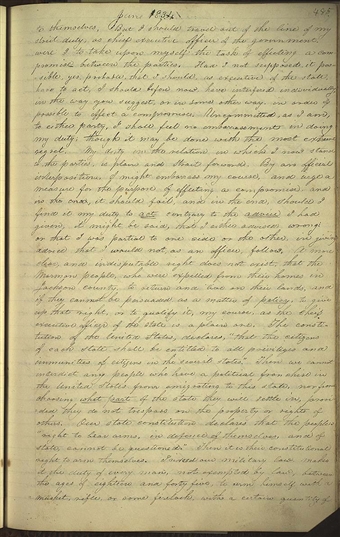 June 1834. 485
to themselves, But I should travel out of the line of my
strict duty, as chief executive officer of the government
were I to take upon myself the task of effecting a com
promise between the parties. Had I not supposed it pos-
sible, yes, probable, that I should, as executive of the state
have to act, I should before now have interfered individually
in the way you suggest, or in some other way, in order if
possible to effect a compromise. Uncommitted, as I am,
to either party, I shall feel no embarrassment in doing
my duty; though it may be done with the most extreme
regret. My duty in the relation in which I now stand
to the parties, is plain and straight forward. By an official
interposition I might embarrass my course, and urge a
measure for the purpose of effecting a compromise and
it should fail, and in the end, should I
find it my duty to act contrary to the advice I had
given, it might be said, that I either advised wrong
or that I was partial to one side or the other, in giving
advice that I would not as an officer, follow. A more
clear, and indisputable right does not exist, that the
Mormon people, who were expelled from their homes in
Jackson county, to return and live on their lands, and
if they cannot be persuaded as a matter of policy, to give
up that right, or to qualify it, my course, as the chief
executive officer of the state is a plain one. The consti-
tution of the United States, declares, "that the citizens
of each state shall be entitled to all privileges and
immunities of citizens in the several states." Then we cannot
interdict any people who have a political franchise in
the United States from emigrating to this state, nor from
choosing what part of the state they will settle in, provi-
ded they do not trespass on the property or rights of
others. Our state constitution declares that the people's
"right to bear arms, in defence of themselves, and of
state cannot be questioned." Then it is their constitutional
right to arm themselves. Indeed our military law makes
it the duty of every man, not exempted by law, between
the ages of eighteen and forty five, to arm himself with a
musket, rifle, or some firelock, with a certain quantity of